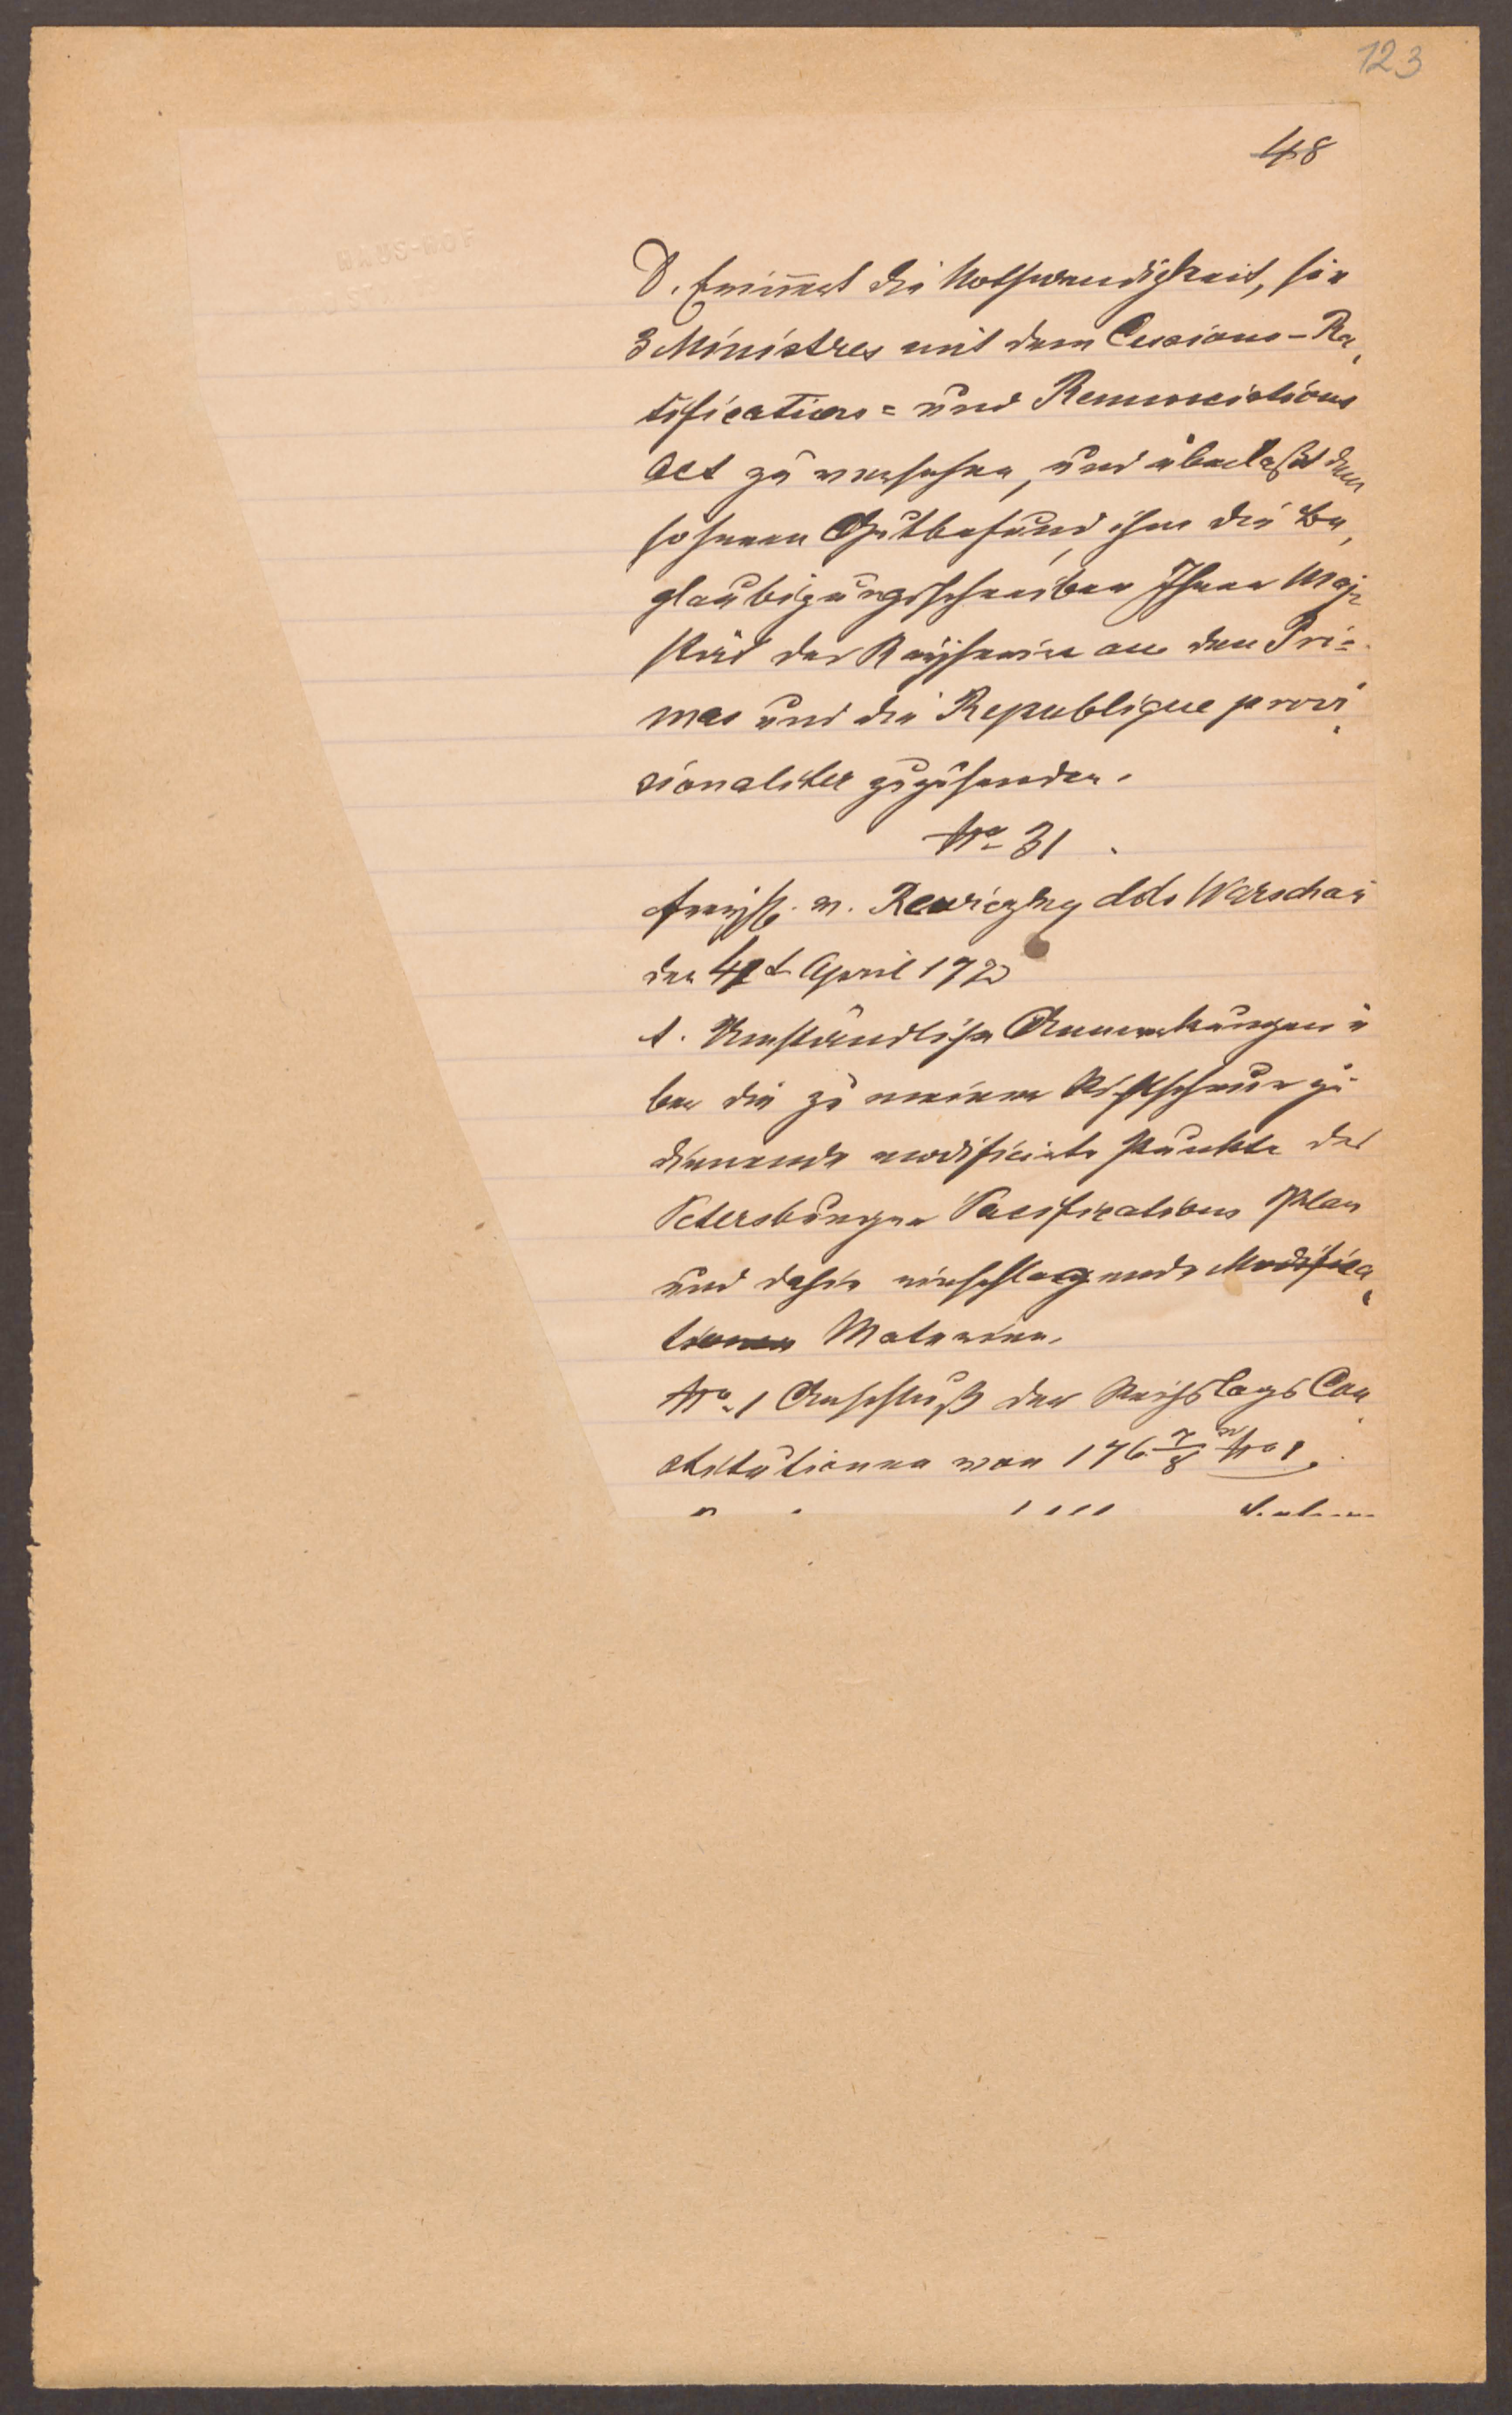 123
48
D. Erinnert die Nothwendigkeit, hie
3 Ministres mit dem Cessions-Ra,
tifications= und Renunciations
Act zu versehen, und überlaßt dem
höheren Gutbefund, ihm die Be,
glaubigungsschreiben Ihrer Maje
stät der Kayserin an den Pri=
mas und die Republique provi
sionaliter zuzusenden.
No 31
Freyh. v. Rewiczky ddo Warschau
den 4t April 177
A. Umständliche Anmerkungen ü
ber die zu meiner Richtschnur zu
dienende modificirte Punkte des
Petersburger Pacifications Plan
und dahin einschlagende Modifica,
tionen Materien.
No 1 Anschluß der Reichstags Con
stitutionen von 176 7/8 No 1.